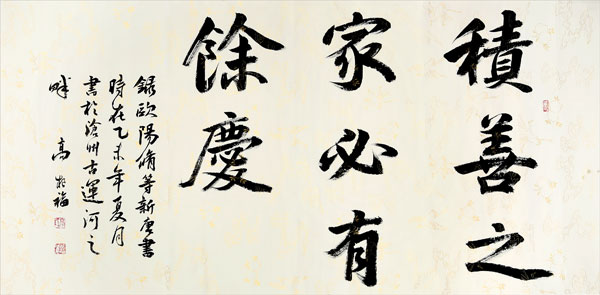 積善之
家必有
餘慶
録歐陽脩等新唐書
時在乙未年夏月
書於滄州古運河之
畔 高
福